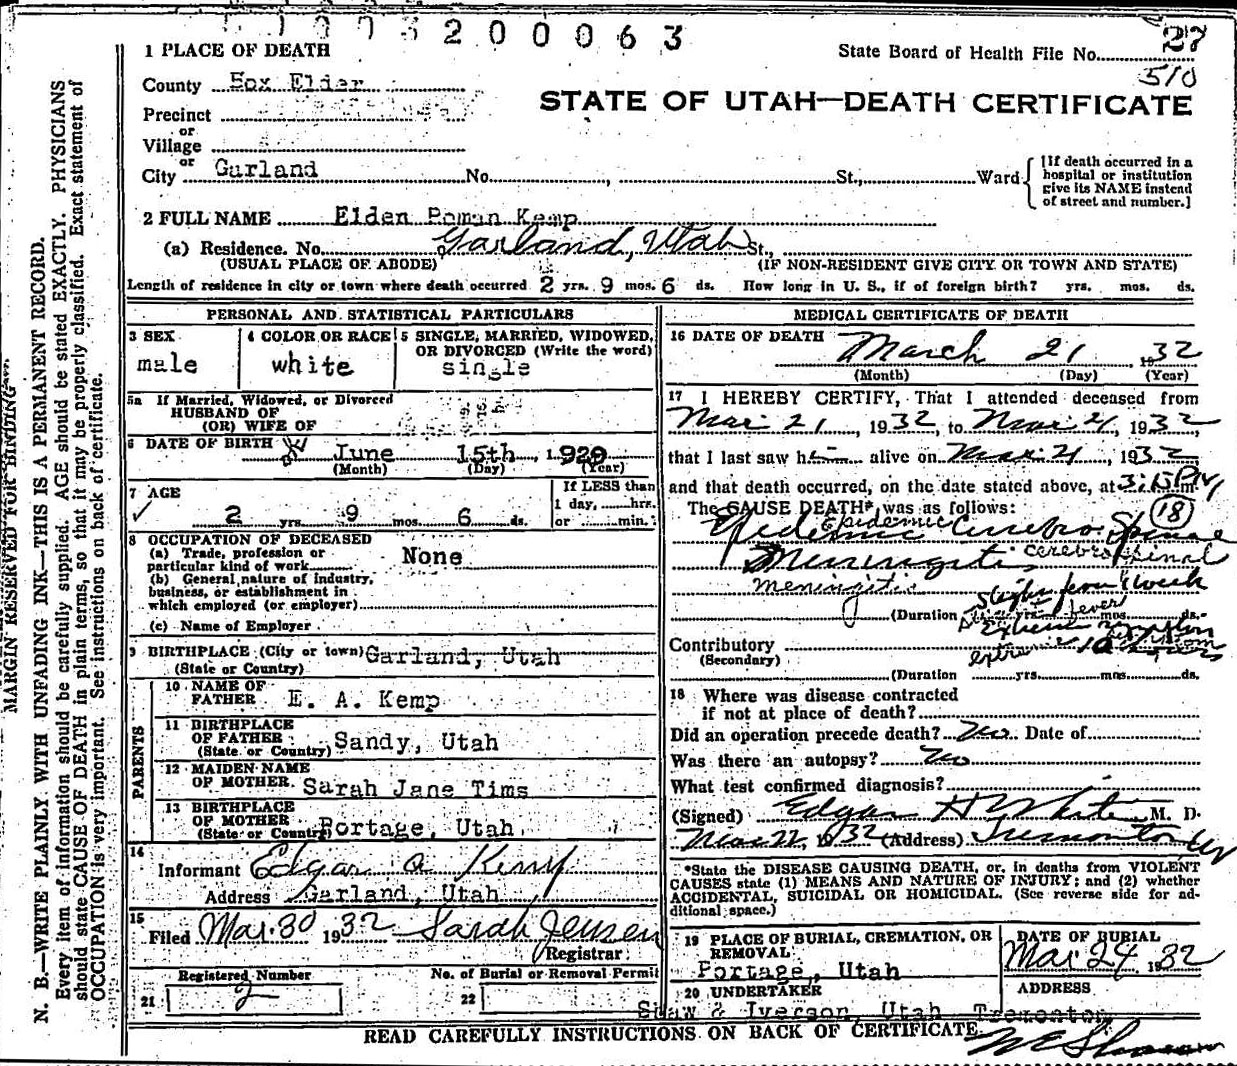 200063
27
1 PLACE OF DEATH
State Board of Health File No.
510
County Box Elder
STATE OF UTAH—DEATH CERTIFICATE
Precinct
or
Village
or
City Garland No. , St., Ward
[If death occurred in a
hospital or institution
give its NAME instead
of street and number.]
2 FULL NAME Elden Roman Kemp
(a) Residence. No. Garland, Utah St.,
(USUAL PLACE OF ABODE) (IF NON-RESIDENT GIVE CITY OR TOWN AND STATE)
Length of residence in city or town where death occurred 2 yrs. 9 mos. 6 ds. How long in U. S., if of foreign birth? yrs. mos. ds.
PERSONAL AND STATISTICAL PARTICULARS
3 SEX
male
4 COLOR OR RACE
white
5 SINGLE, MARRIED, WIDOWED,
OR DIVORCED (Write the word)
single
5a If Married, Widowed, or Divorced
HUSBAND OF
(OR) WIFE OF
6 DATE OF BIRTH June 15th, 1929
(Month) (Day) (Year)
7 AGE
2 yrs. 9 mos. 6 ds.
If LESS than
1 day, hrs.
or min.
8 OCCUPATION OF DECEASED
(a) Trade, profession or
particular kind of work None
(b) General nature of industry,
business, or establishment in
which employed (or employer)
(c) Name of Employer
9 BIRTHPLACE (City or town) Garland, Utah
(State or Country)
PARENTS
10 NAME OF
FATHER E. A. Kemp
11 BIRTHPLACE
OF FATHER
(State or Country) Sandy, Utah
12 MAIDEN NAME
OF MOTHER Sarah Jane Tims
13 BIRTHPLACE
OF MOTHER
(State or Country) Portage, Utah
14
Informant Edgar A Kemp
Address Garland, Utah
15
Filed Mar. 30 1932 Sarah Jensen
Registrar
Registered Number
21 2
No. of Burial or Removal Permit
22
MEDICAL CERTIFICATE OF DEATH
16 DATE OF DEATH
March 21 1932
(Month) (Day) (Year)
17 I HEREBY CERTIFY, That I attended deceased from
Mar 21, 1932, to Mar 21, 1932,
that I last saw h alive on Mar 21, 1932,
and that death occurred, on the date stated above, at 3:15 PM m.
The CAUSE OF DEATH* was as follows:
18
Epidemic Cerebro Spinal
Epidemic
Meningitis cerebro spinal
meningitis
(Duration yrs. mos. ds.
Contributory
(Secondary)
(Duration yrs. mos. ds.
18 Where was disease contracted
if not at place of death?
Did an operation precede death? No Date of
Was there an autopsy? No
What test confirmed diagnosis?
(Signed) Edgar H White M. D.
Mar 22, 1932 (Address) Tremonton
*State the DISEASE CAUSING DEATH, or, in deaths from VIOLENT
CAUSES state (1) MEANS AND NATURE OF INJURY; and (2) whether
ACCIDENTAL, SUICIDAL OR HOMICIDAL. (See reverse side for ad-
ditional space.)
19 PLACE OF BURIAL, CREMATION, OR
REMOVAL
Portage, Utah
DATE OF BURIAL
Mar 24, 1932
20 UNDERTAKER
Shaw & Iverson, Utah Tremonton
ADDRESS
READ CAREFULLY INSTRUCTIONS ON BACK OF CERTIFICATE.
MARGIN RESERVED FOR BINDING
N. B.—WRITE PLAINLY WITH UNFADING INK—THIS IS A PERMANENT RECORD.
Every item of information should be carefully supplied. AGE should be stated EXACTLY. PHYSICIANS
should state CAUSE OF DEATH in plain terms, so that it may be properly classified. Exact statement of
OCCUPATION is very important. See instructions on back of certificate.